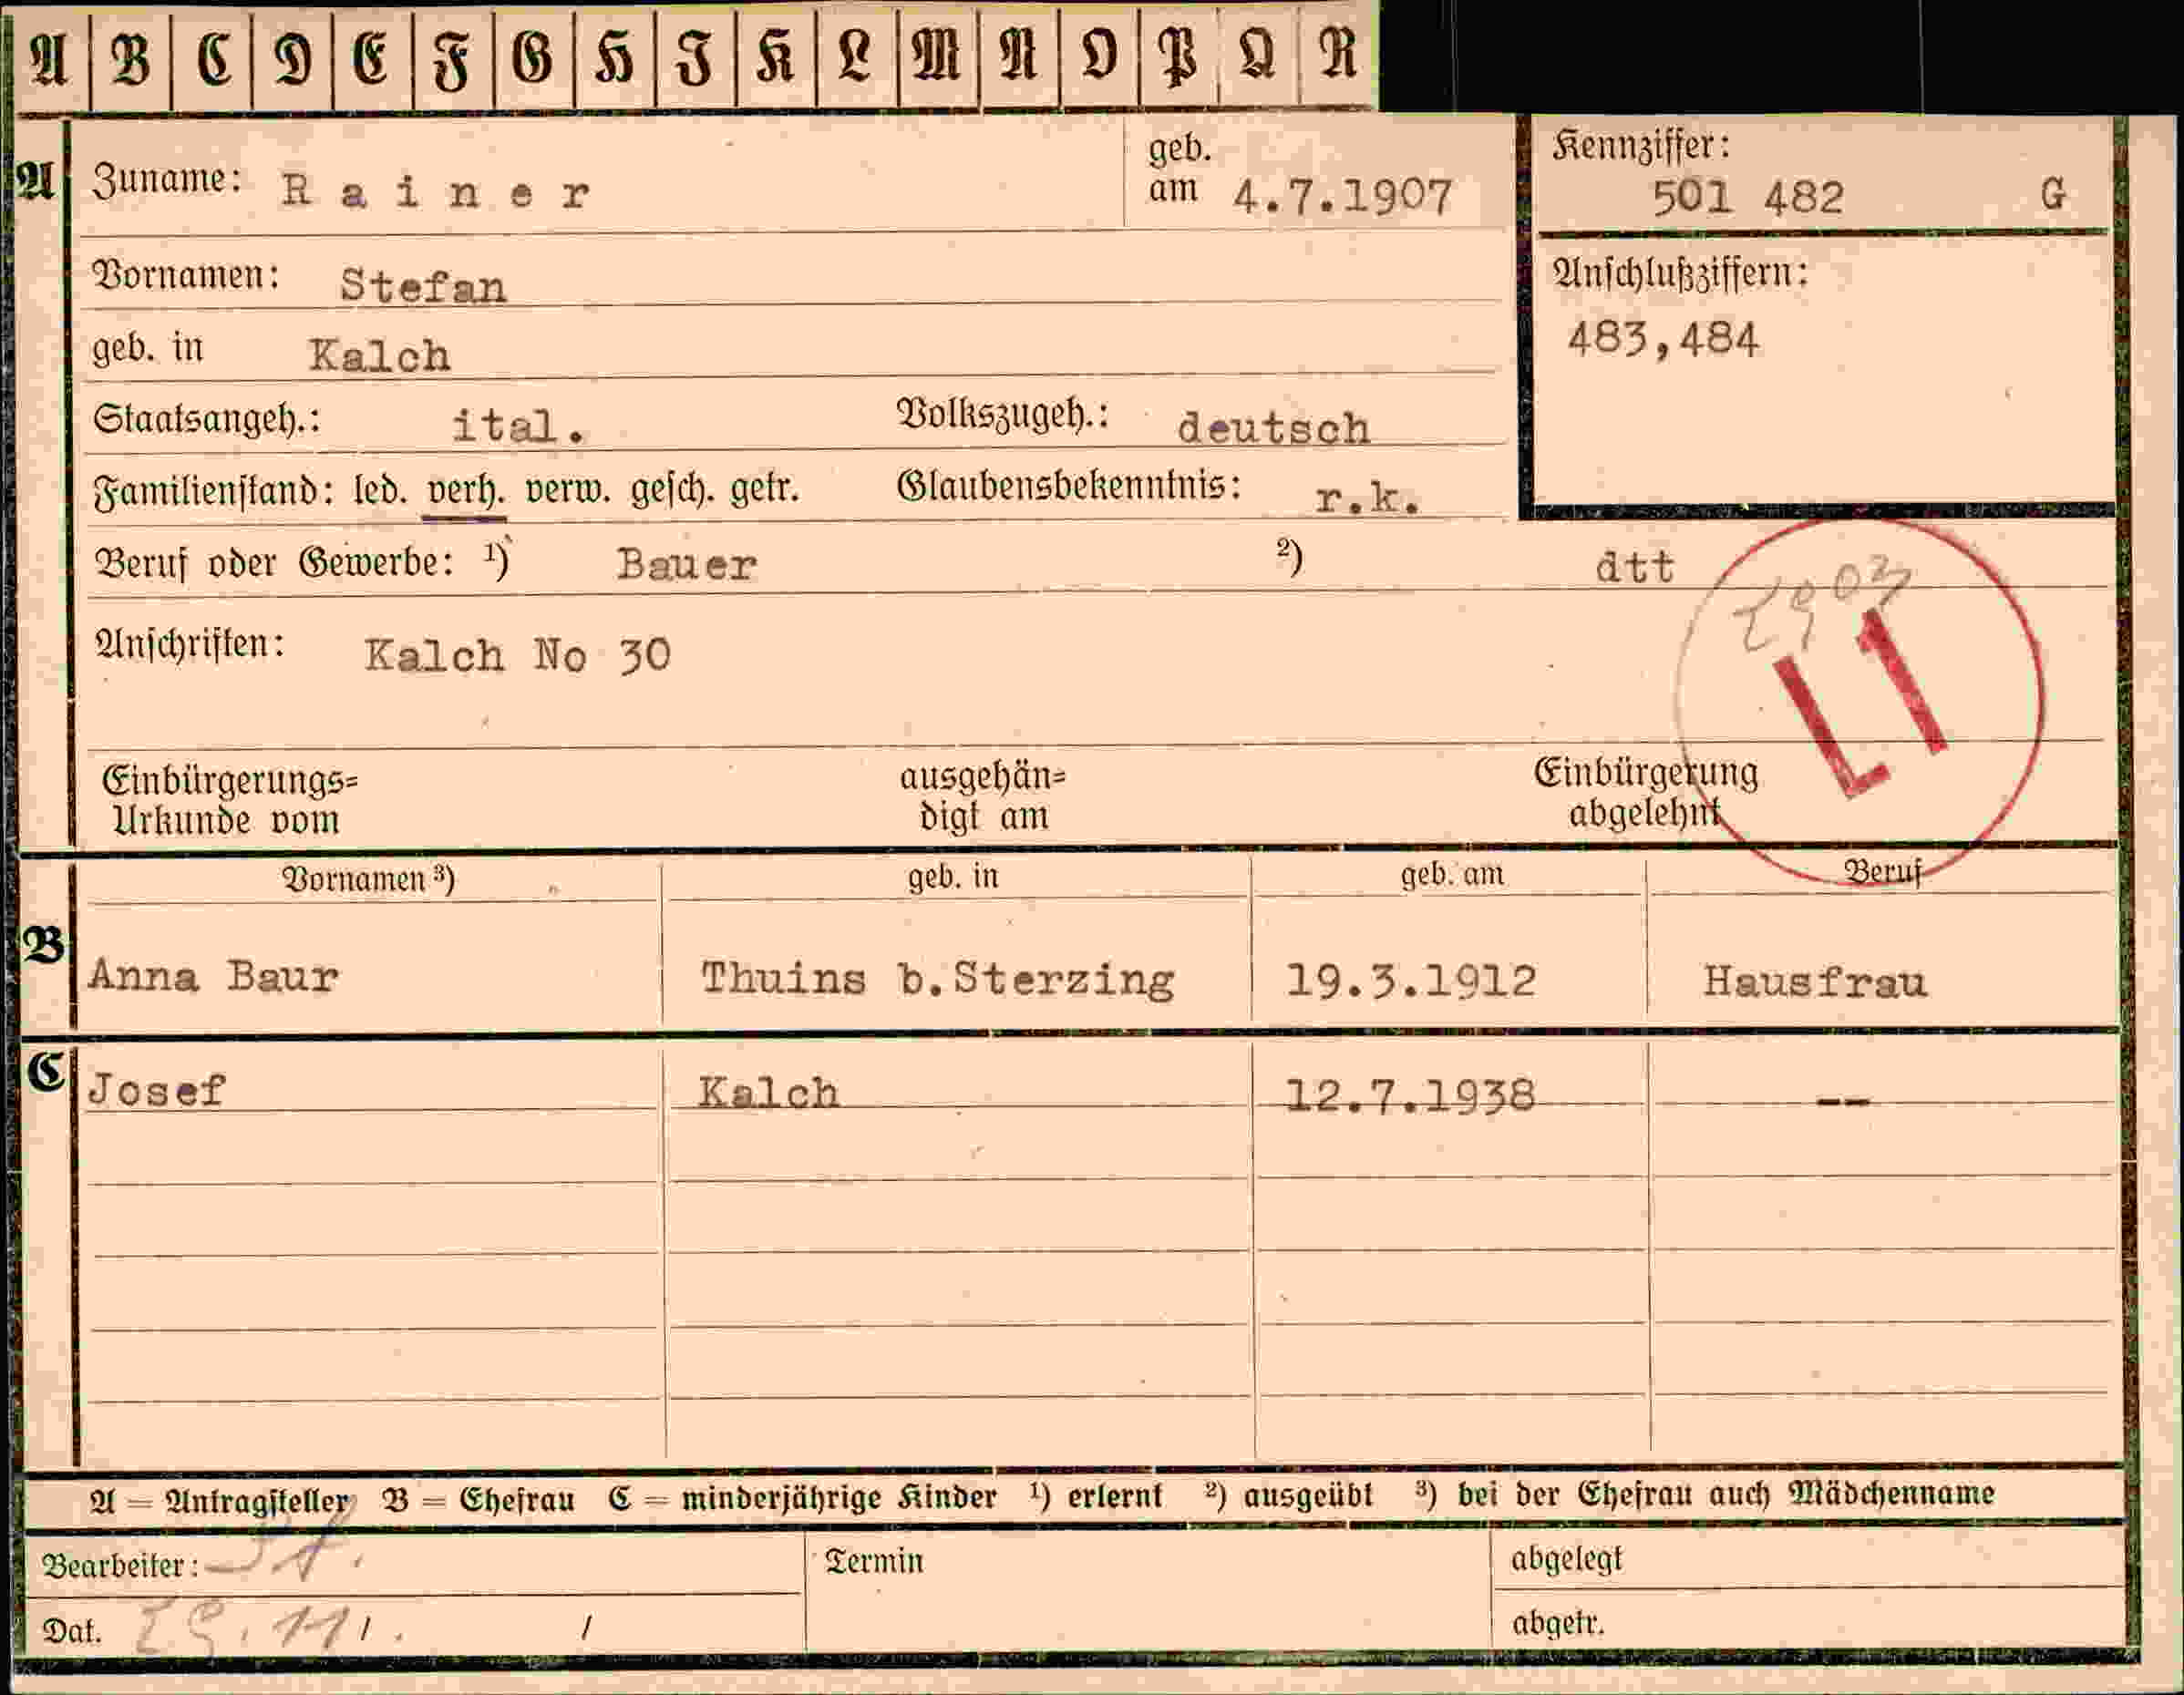 A B C D E F G H I K L M N O P Q R
A Zuname: Rainer geb. am 4.7.1907
Kennziffer: 501 482 G
Vornamen: Stefan
Anschlußziffern:
483,484
geb. in Kalch
Staatsangeh.: ital. Volkszugeh.: deutsch
Familienstand: led. verh. verw. gesch. getr. Glaubensbekenntnis: r.k.
Beruf oder Gewerbe: ¹) Bauer ²) dtt
L1
Anschriften: Kalch No 30
Einbürgerungs=
Urkunde vom
ausgehän=
digt am
Einbürgerung
abgelehnt
Vornamen ³) geb. in geb. am Beruf
B Anna Baur Thuins b.Sterzing 19.3.1912 Hausfrau
C Josef Kalch 12.7.1938 --
A = Antragsteller B = Ehefrau C = minderjährige Kinder ¹) erlernt ²) ausgeübt ³) bei der Ehefrau auch Mädchenname
Bearbeiter: Termin abgelegt
Dat. / / abgetr.